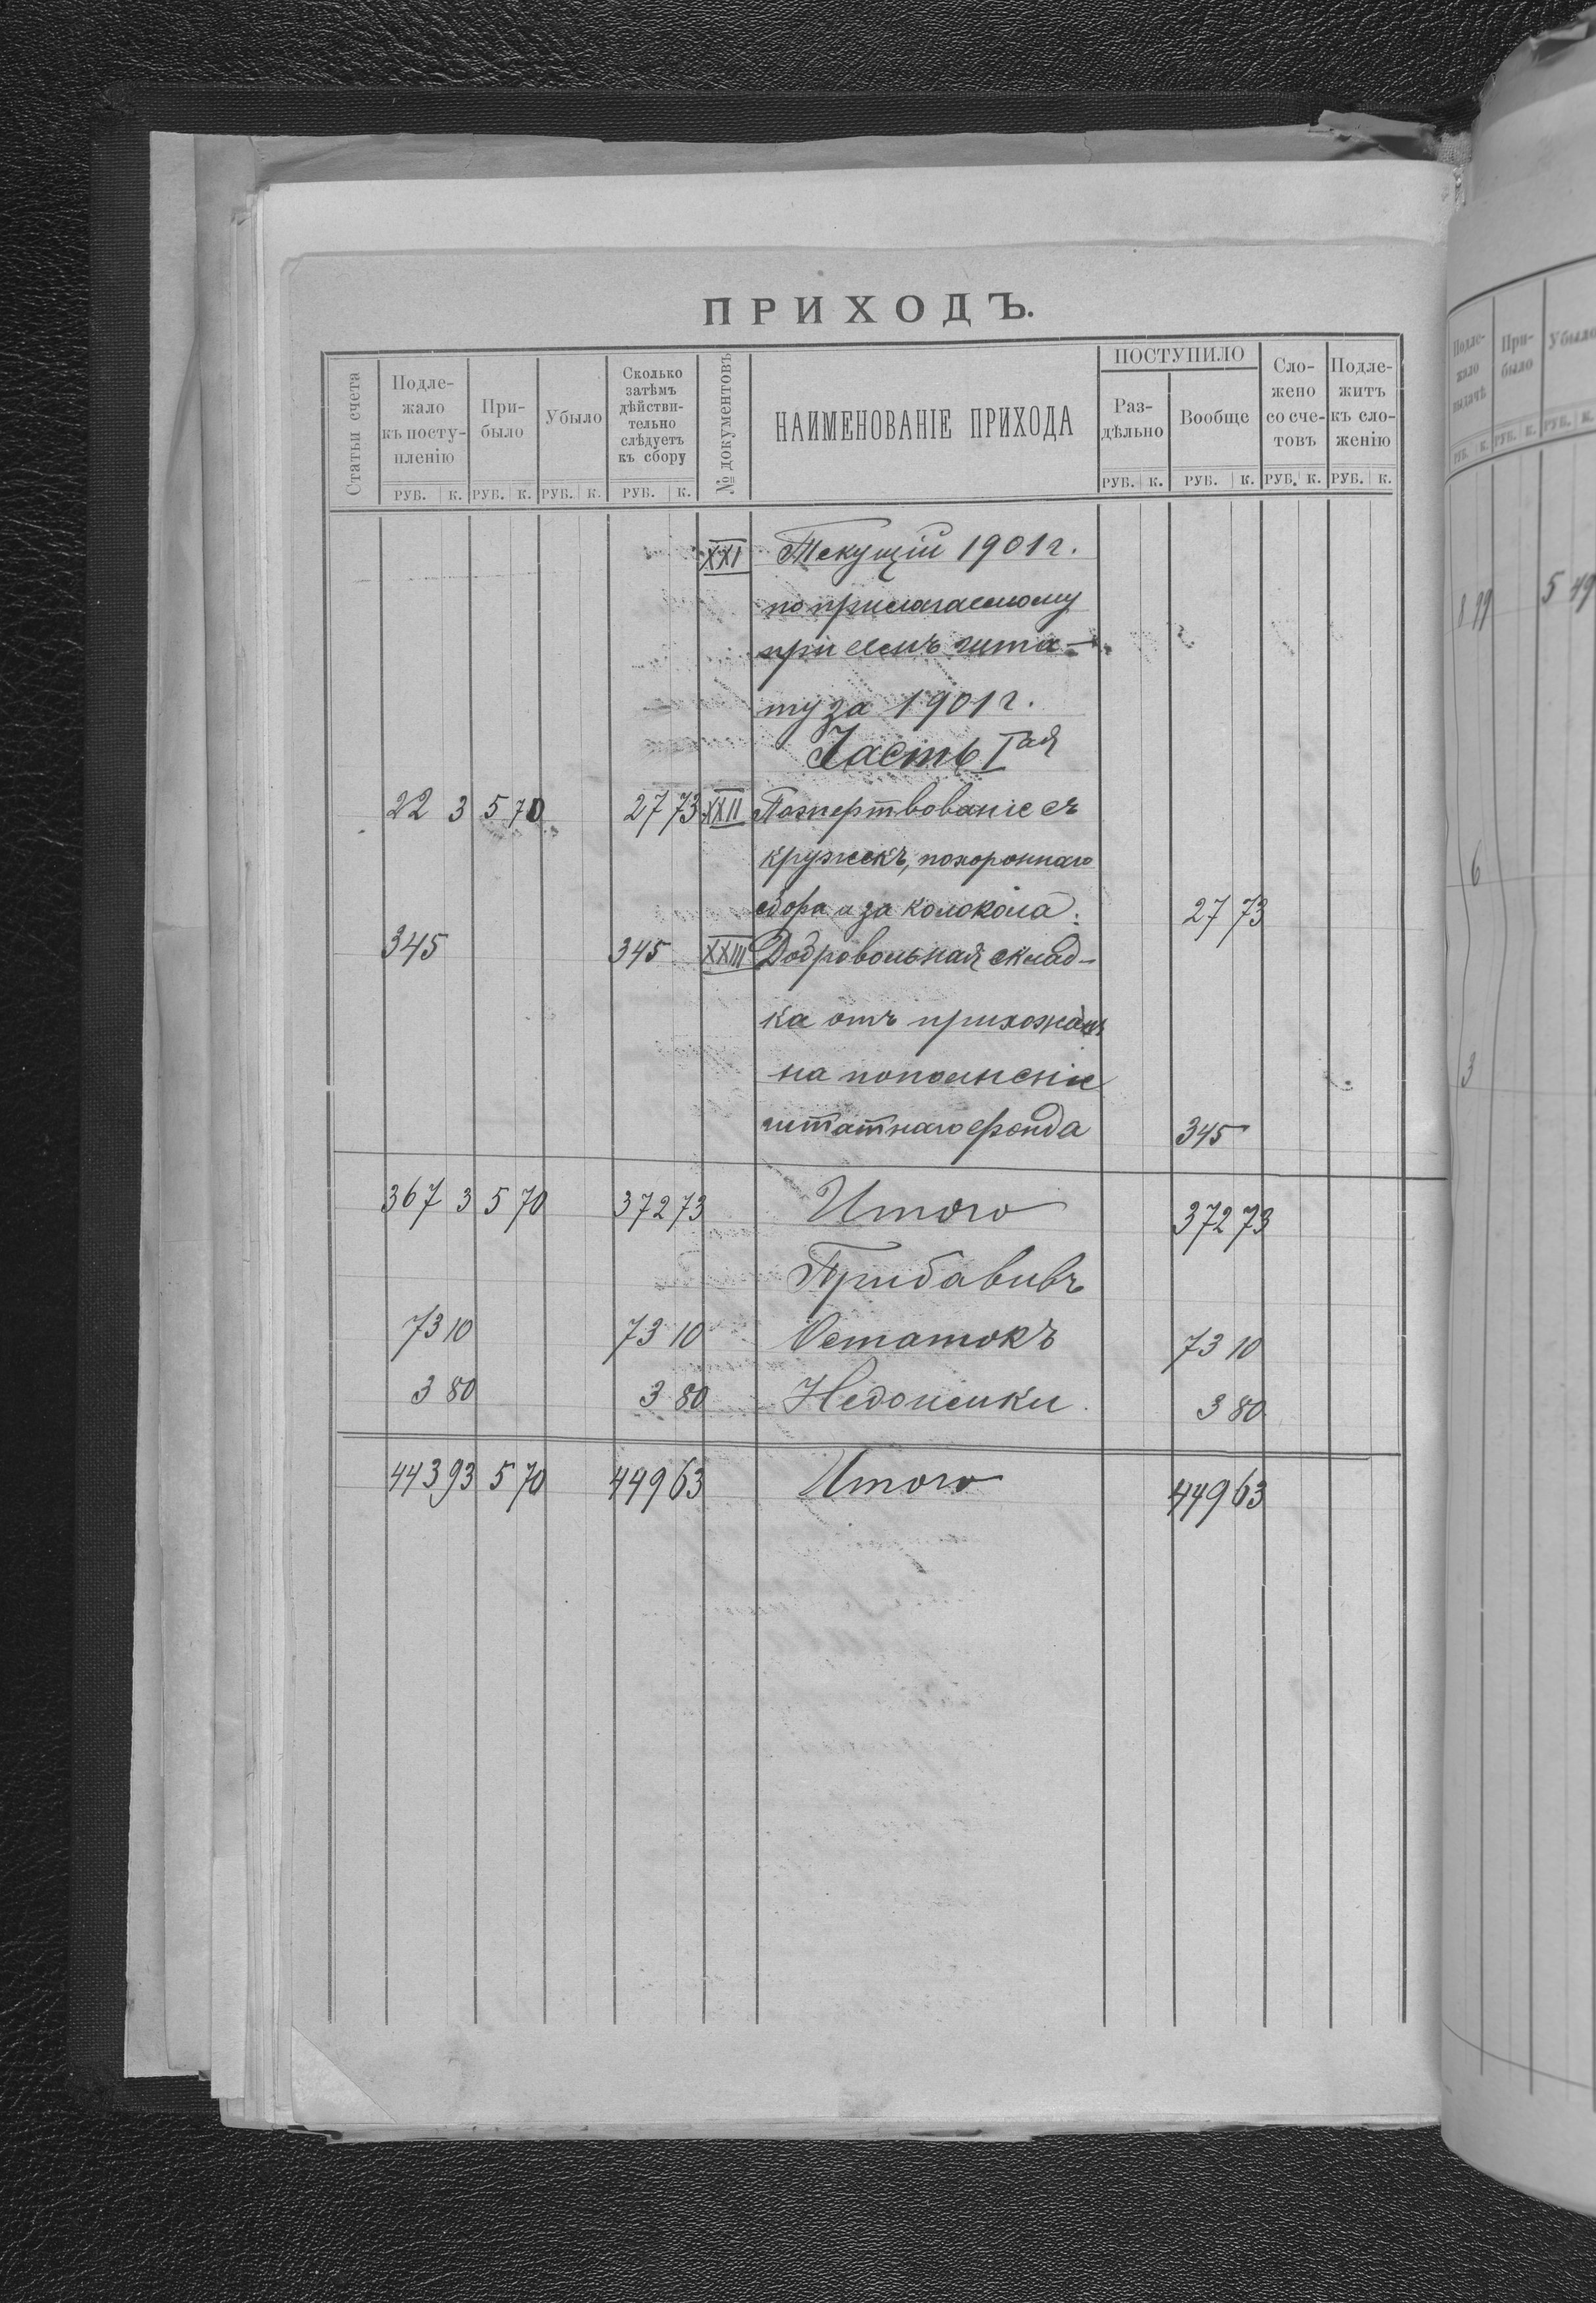 ПРИХОДЪ.
Статьи счета | Подлежало къ поступленію | Прибыло | Убыло | Сколько затѣмъ дѣйствительно слѣдуетъ къ сбору | № документовъ | НАИМЕНОВАНІЕ ПРИХОДА | ПОСТУПИЛО Раздѣльно | Вообще | Сложено со счетовъ | Подлежитъ къ сложенію
РУБ. К. РУБ. К. РУБ. К. РУБ. К. РУБ. К. РУБ. К. РУБ. К. РУБ. К.
XXI Текущій 1901 г.
по прилагаемому
при семъ шта-
ту за 1901 г.
Часть I ая
22 3 5 70 27 73 XXII Пожертвованіе съ
кружекъ, похороннаго
сбора и за колокола. 27 73
345 345 XXIII Добровольная склад-
ка отъ прихожанъ
на пополненіе
штатнаго фонда 345
367 3 5 70 372 73 Итого 372 73
Прибавивъ
73 10 73 10 Остатокъ 73 10
3 80 3 80 Недоимки 3 80
443 93 5 70 449 63 Итого 449 63
Подлежало выдачѣ | Прибыло | Убыло
РУБ. К. РУБ. К. РУБ. К.
5 49
6
3